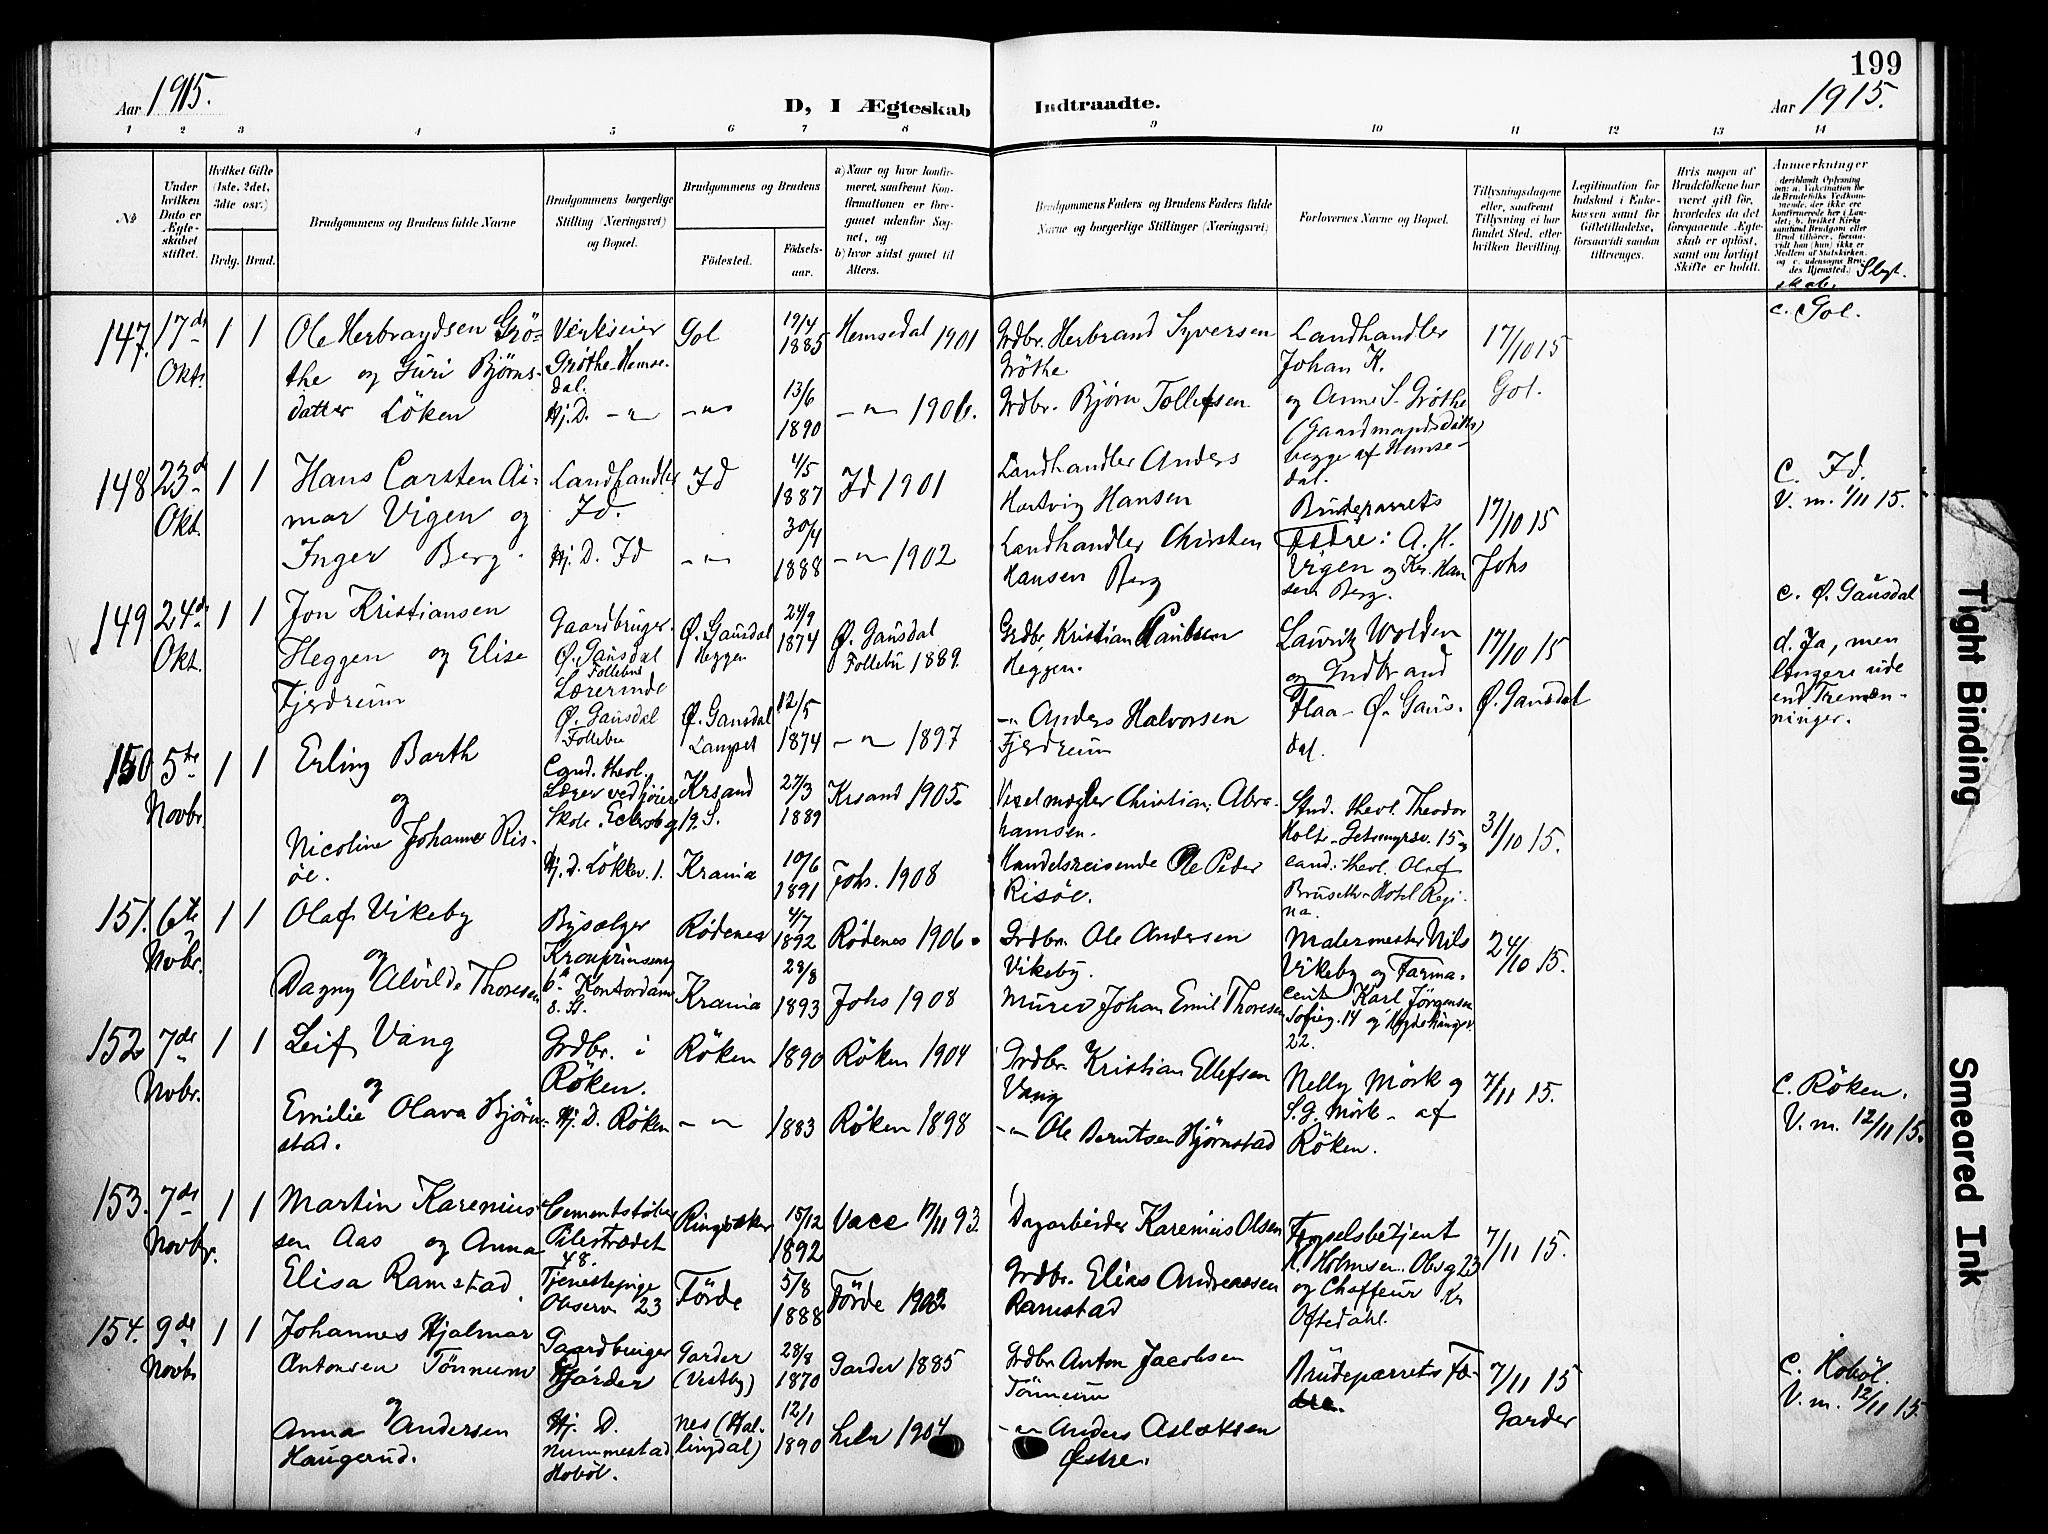 199
Aar 1915.
D, I Ægteskab Indtraadte.
Aar 1915.
1 2 3 4 5 6 7 8 9 10 11 12 13 14
No
Under hvilken Dato er Ægteskabet stiftet.
Hvilket Gifte (1ste, 2det, 3dte osv.)
Brdg. Brud.
Brudgommens og Brudens fulde Navne
Brudgommens borgerlige Stilling (Næringsvei) og Bopæl.
Brudgommens og Brudens
Fødested.
Fødselsaar.
a) Naar og hvor konfirmeret, saafremt Konfirmationen er foregaaet udenfor Sognet, og
b) hvor sidst gaaet til Alters.
Brudgommens Faders og Brudens Faders fulde Navne og borgerlige Stillinger (Næringsvei)
Forlovernes Navne og Bopæl.
Tillysningsdagene eller, saafremt Tillysning ei har fundet Sted, efter hvilken Bevilling.
Legitimation for Indskud i Enkekassen samt for Giftetilladelse, forsaavidt saadan tiltrænges.
Hvis nogen af Brudefolkene har været gift før, hvorledes da det foregaaende Ægteskab er opløst, samt om lovligt Skifte er holdt.
Anmerkninger
deriblandt Oplysning om: a. Vakcination for de Brudefolks Vedkommende, der ikke ere konfirmerede her i Landet; b. hvilket Kirkesamfund Brudgom eller Brud tilhører, forsaavidt han (hun) ikke er Medlem af Statskirken, og c. udensogns Brudes Hjemsted.
Slegtskab.
147. 17de Okt. 1 1
Ole Herbrandsen Grøthe og Guri Bjørnsdatter Löken
Verkseier Grøthe Hemsedal.
Hj. D. -"-
Gol 19/4 1885 Hemsedal 1901
-"- 13/6 1890 -"- 1906.
Grdbr. Herbrand Syversen Grøthe
Grdbr. Bjørn Tollefsen
Landhandler Johan K. og Anne S. Grøthe (Gaardmandsdatter) begge af Hemsedal.
17/10 15 Gol.
c. Gol.
148 23de Okt. 1 1
Hans Carsten Aimar Vigen og Inger Berg.
Landhandler Id.
Hj. D. Id
Id 4/5 1887 Id 1901
-"- 30/4 1888 -"- 1902
Landhandler Anders Hartvig Hansen
Landhandler Christen Hansen Berg
Brudeparrets Fædre: A. H. Vigen og Kr. Hansen Berg.
17/10 15 Johs
c. Id.
V. m. 1/11 15.
149 24de Okt. 1 1
Jon Kristiansen Heggen og Elise Fjerdrum
Gaardbruger. Ø. Gausdal Follebu
Lærerinde Ø. Gausdal Follebu
Ø. Gausdal Heggen 24/9 1874 Ø. Gausdal Follebu 1889.
Ø. Gausdal 12/5 1874 -"- 1897
Grdbr. Kristian Paulsen Heggen.
-"- Anders Halvorsen Fjerdrum
Lauritz Wolden og Gudbrand Flaa - Ø. Gausdal.
17/10 15 Ø. Gausdal
c. Ø. Gausdal
d. Ja, men længere ude end Tremænninger.
150 5te Novbr. 1 1
Erling Barth og Nicoline Johanne Risöe.
Cand. theol. Lærer ved høiere Skole. Eckersbg. 19.
Hj. D. Lökkev. 1.
Krsand S. 27/3 1889 Krsand 1905.
Krania 10/6 1891 Johs. 1908
Vexelmægler Christian Abrahamsen.
Handelsreisende Ole Peder Risöe.
Stud. theol. Theodor Holt - Getmyrsv. 15 og cand. theol. Olaf Bruseth - Hotel Regina.
31/10 15.
151. 6te Novbr. 1 1
Olaf Vikeby og Dagny Alvilde Thoresen
Bysælger Kronprinsens g. 6a
Kontordame s. St.
Rödenes 4/7 1892 Rödenes 1906.
Krania 28/8 1893 Johs 1908
Grdbr. Ole Andersen Vikeby.
Murer Johan Emil Thoresen
Malermester Nils Vikeby og Farmaceut Karl Jörgensen Sofieg. 14 og 22.
24/10 15.
152 7de Novbr. 1 1
Leif Vang og Emilie Olava Hjörnstad.
Grdbr. i Röken.
Hj. D. Röken
Röken 1890 Röken 1904
-"- 1883 Röken 1898
Grdbr. Kristian Ellefsen Vang
-"- Ole Berntsen Hjörnstad
Nelly Mörk og S. G. Mörk - af Röken.
7/11 15.
c. Röken.
V. m. 12/11 15.
153. 7de Novbr. 1 1
Martin Kareniussen Aas og Anna Elisa Ramstad.
Cementstøber Pilestrædet 48.
Tjenestepige Observ. 23
Ringsaker 15/12 1892 Vace 17/11 93.
Förde 5/8 1888 Förde 1903
Dagarbeider Karenius Olsen
Grdbr. Elias Andreassen Ramstad
Fængselsbetjent H. Holmsen. Obsg 23 og Chaffeur Kr Oftedahl.
7/11 15.
154. 9de Novbr. 1 1
Johannes Hjalmar Antonsen Tönnum og Anna Andersen Haugerud.
Gaardbruger Gjarder
Hj. D. Nummestad Hobøl.
Garder (Vestby) 28/8 1870 Garder 1885
Nes (Hallingdal) 12/1 1890 1904
Grdbr. Anton Jacobsen Tönnum
-"- Anders Aslaksen Østre.
Brudeparrets Fædre.
7/11 15 Garder
c. Hobøl.
V. m. 12/11 15.
Tight Binding
Smeared Ink